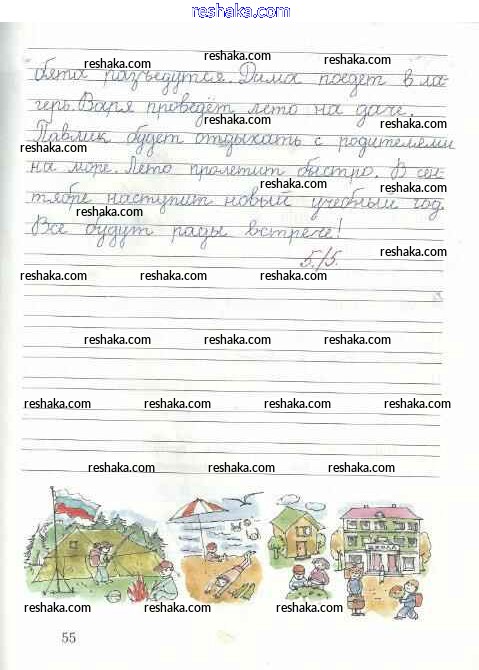 reshaka.com
reshaka.com reshaka.com reshaka.com
бята разъедутся. Дима поедет в ла-
reshaka.com reshaka.com
герь. Варя проведёт лето на даче.
reshaka.com reshaka.com
Павлик будет отдыхать с родителями
reshaka.com
на море. Лето пролетит быстро. В сен-
reshaka.com reshaka.com
тябре наступит новый учебный год.
reshaka.com
Все будут рады встрече!
reshaka.com
5/5.
reshaka.com reshaka.com reshaka.com
reshaka.com reshaka.com reshaka.com
reshaka.com reshaka.com reshaka.com reshaka.com
reshaka.com reshaka.com reshaka.com
reshaka.com reshaka.com reshaka.com reshaka.com
55